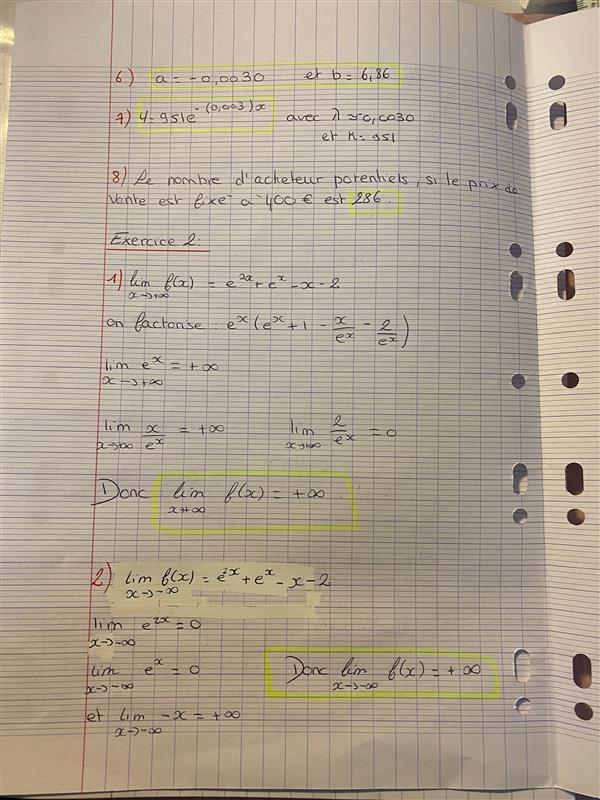 6) a = -0,0030 et b = 6,86
7) y = 951e^{-(0,003)x} avec λ ≈ 0,0030
et K = 951
8) Le nombre d'acheteur potentiels, si le prix de
vente est fixé à 400 € est 286.
Exercice 2:
1) lim_{x→+∞} f(x) = e^{2x} + e^x - x - 2
on factorise : e^x (e^x + 1 - x/e^x - 2/e^x)
lim_{x→+∞} e^x = +∞
lim_{x→+∞} x/e^x = +∞ lim_{x→+∞} 2/e^x = 0
Donc lim_{x→+∞} f(x) = +∞
2) lim_{x→-∞} f(x) = e^{2x} + e^x - x - 2
lim_{x→-∞} e^{2x} = 0
lim_{x→-∞} e^x = 0 Donc lim_{x→-∞} f(x) = +∞
et lim_{x→-∞} -x = +∞